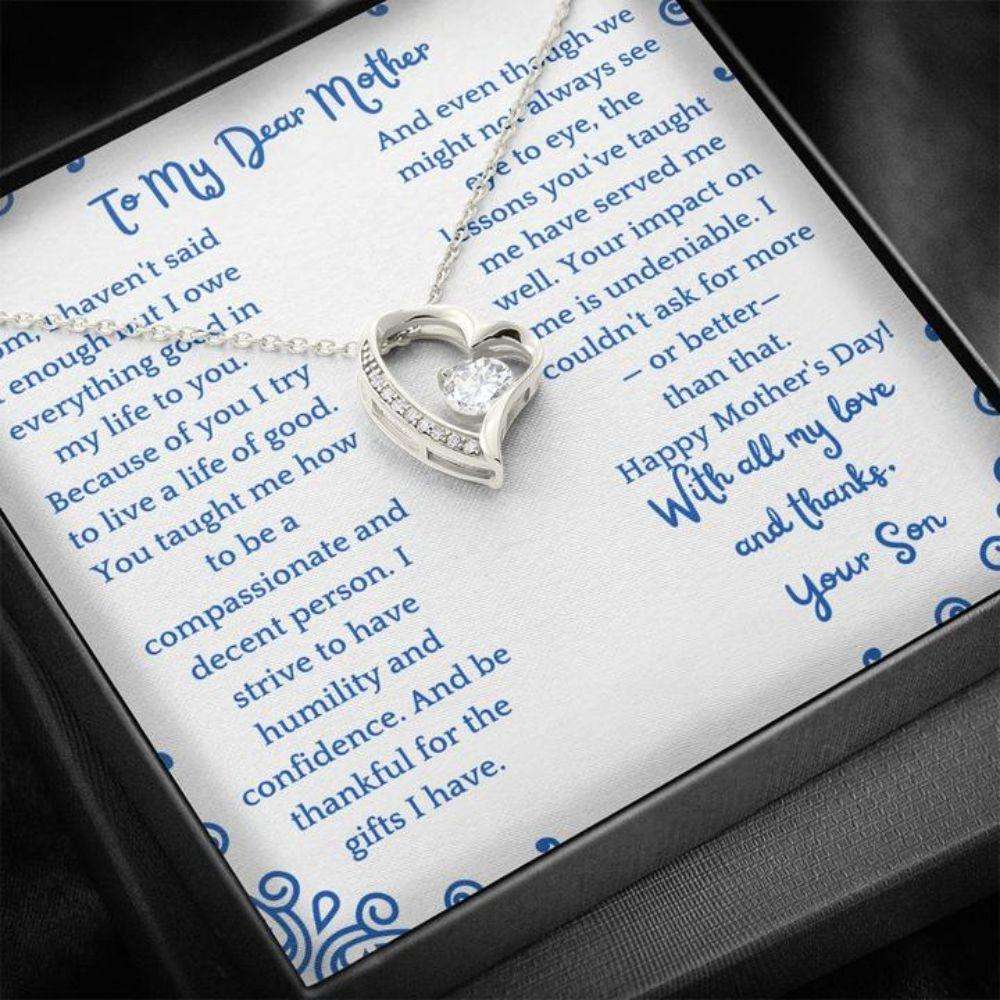 To My Dear Mother
haven't said
enough but I owe
everything good in
my life to you.
Because of you I try
to live a life of good.
You taught me how
to be a
compassionate and
decent person. I
strive to have
humility and
confidence. And be
thankful for the
gifts I have.
And even though we
might not always see
eye to eye, the
lessons you've taught
me have served me
well. Your impact on
me is undeniable. I
couldn't ask for more
— or better—
than that.
Happy Mother's Day!
With all my love
and thanks,
Your Son